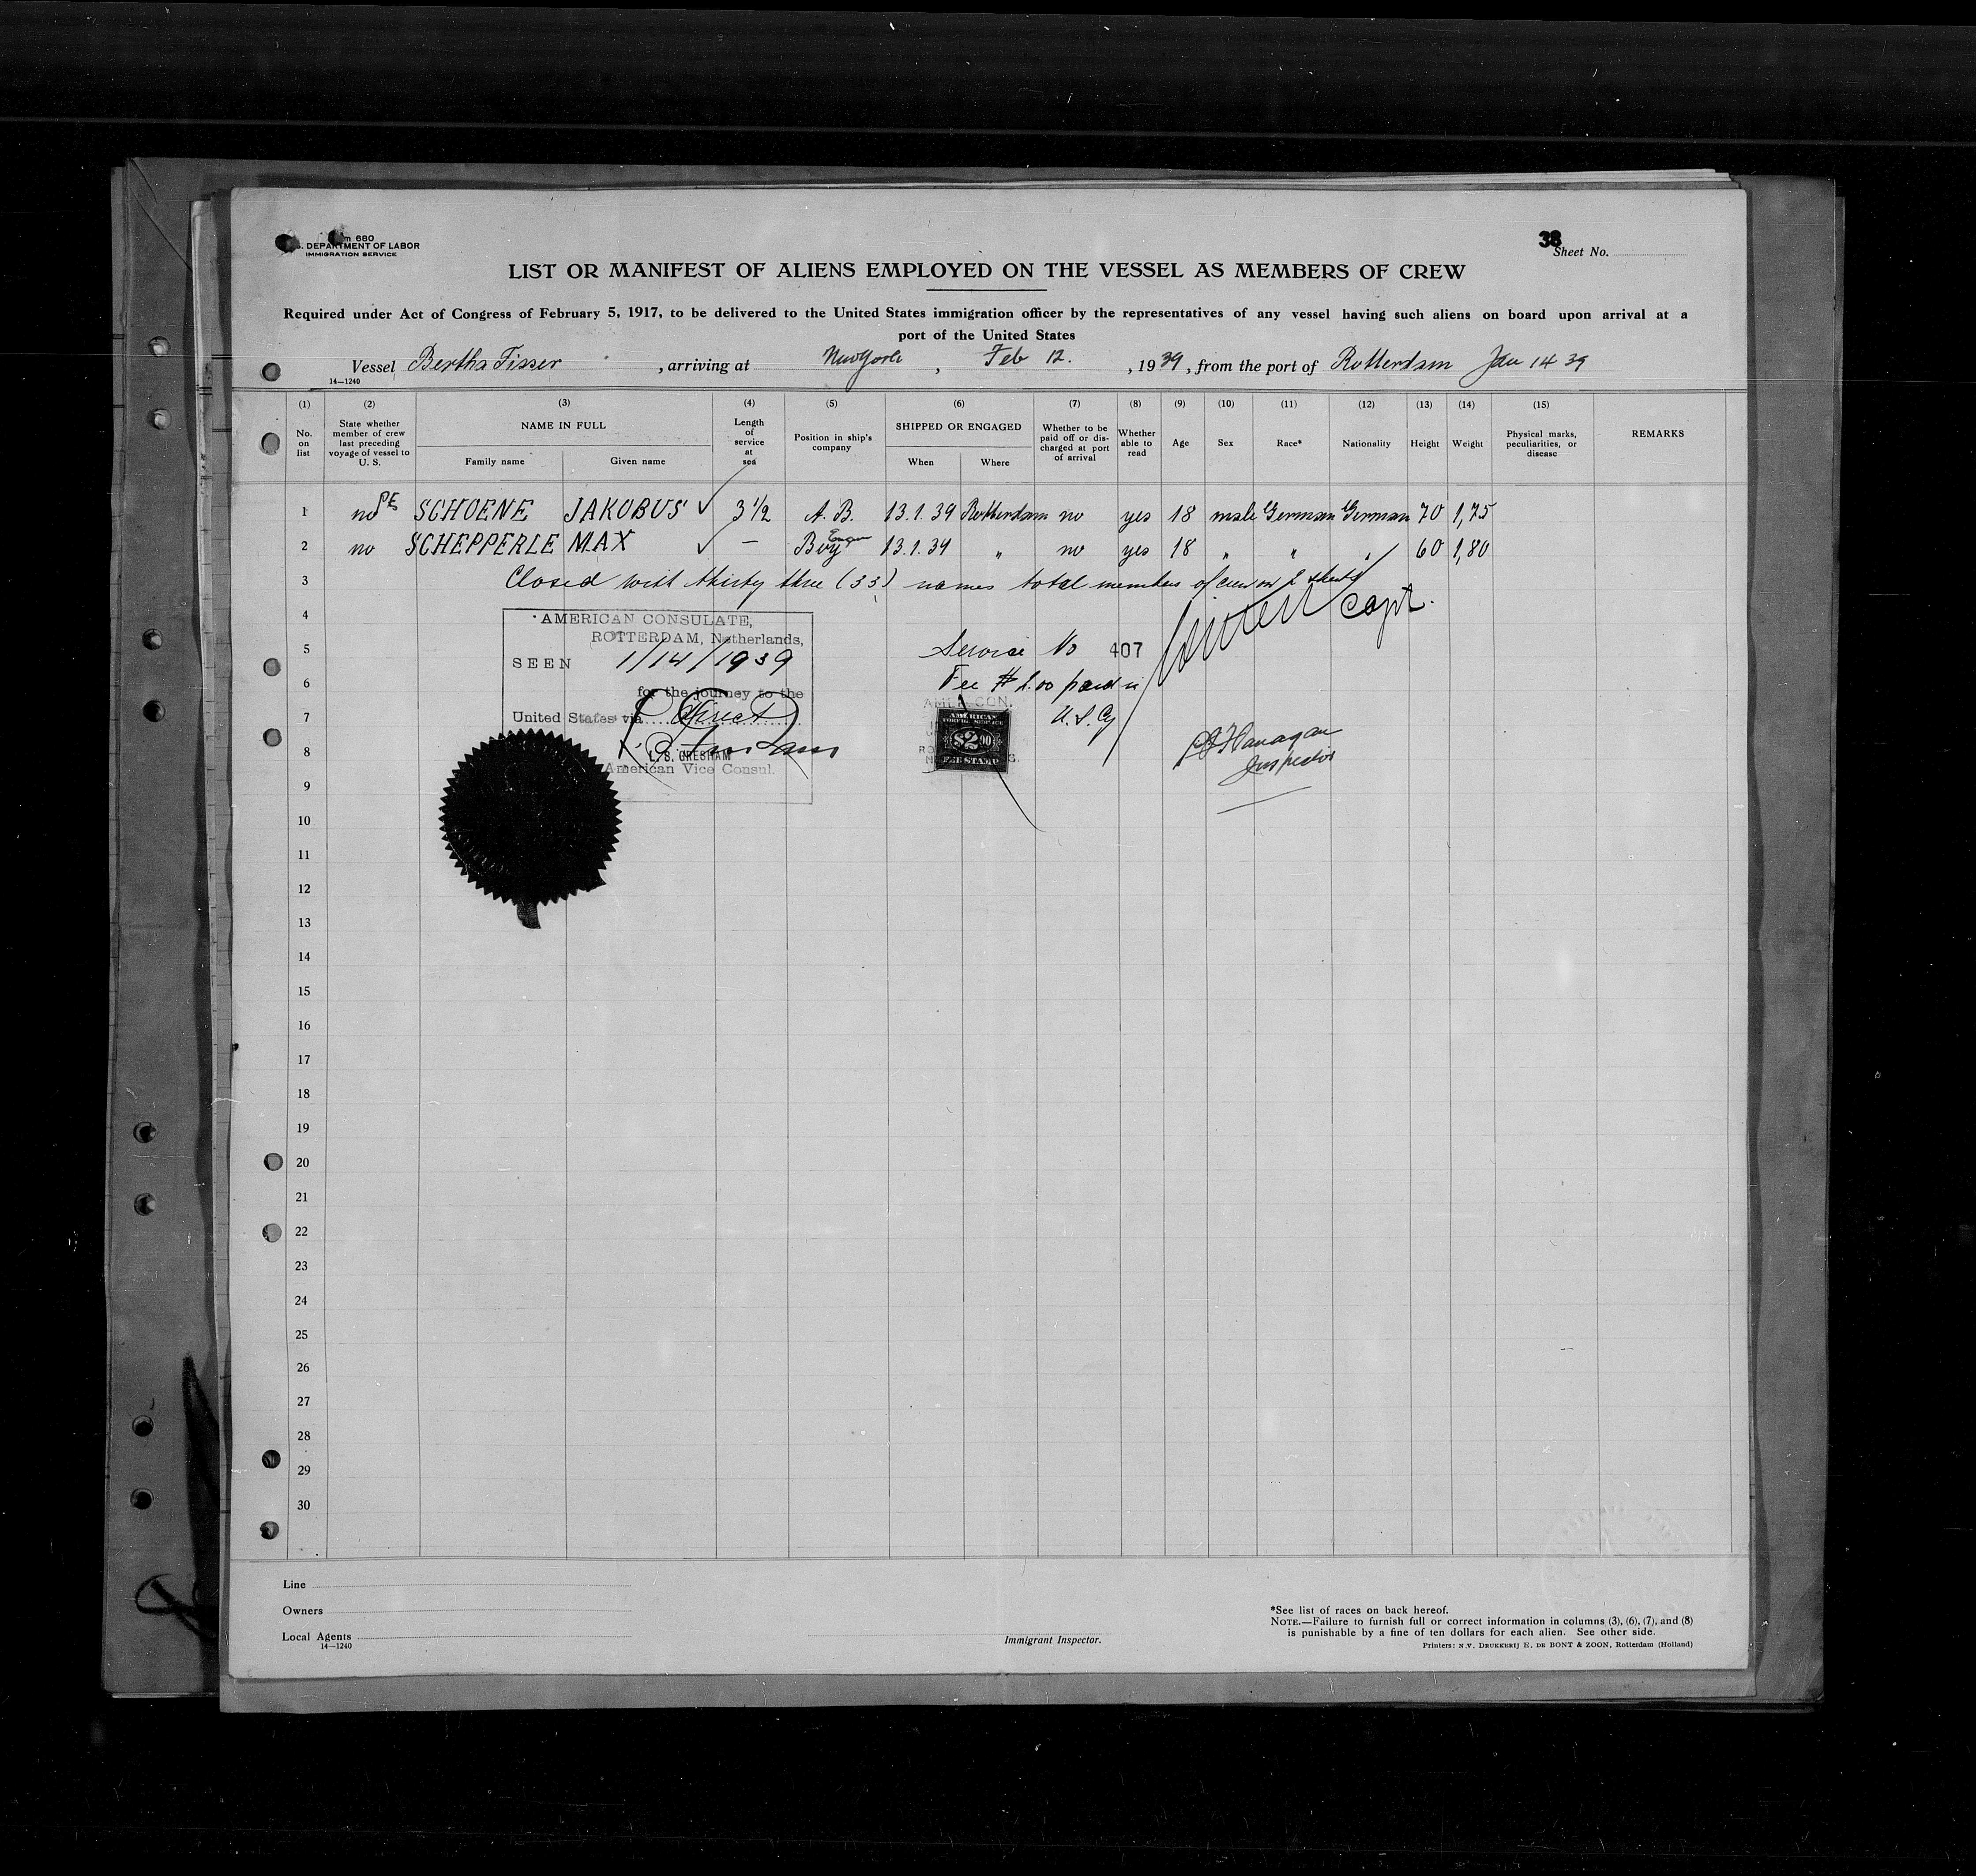 38
m 680
S. DEPARTMENT OF LABOR
IMMIGRATION SERVICE
Sheet No.
LIST OR MANIFEST OF ALIENS EMPLOYED ON THE VESSEL AS MEMBERS OF CREW
Required under Act of Congress of February 5, 1917, to be delivered to the United States immigration officer by the representatives of any vessel having such aliens on board upon arrival at a
port of the United States
Vessel Bertha Fisser , arriving at New York , Feb 12. , 1939 , from the port of Rotterdam Jan 14 39
14—1240
(1) (2) (3) (4) (5) (6) (7) (8) (9) (10) (11) (12) (13) (14) (15)
No. on list
State whether member of crew last preceding voyage of vessel to U. S.
NAME IN FULL
Family name Given name
Length of service at sea
Position in ship's company
SHIPPED OR ENGAGED
When Where
Whether to be paid off or discharged at port of arrival
Whether able to read
Age
Sex
Race*
Nationality
Height
Weight
Physical marks, peculiarities, or disease
REMARKS
1 no SCHOENE JAKOBUS ✓ 3 1/2 A. B. 13.1.39 Rotterdam no yes 18 male German German 70 1,75
2 no SCHEPPERLE MAX ✓ — Boy 13.1.39 " no yes 18 " " " 60 1,80
3 Closed with thirty three (33) names total members of crew on 2 sheets
Capt.
4
AMERICAN CONSULATE,
ROTTERDAM, Netherlands,
5 Service No 407
SEEN 1/14/1939
6 Fee $ 2.00 paid in
for the journey to the
AMER. CON.
7 U.S. Cy
United States via direct
AMERICAN
FOREIGN SERVICE
$2.00
FEE STAMP
8
L. S. GRESHAM
American Vice Consul.
Flanagan
Inspector
9
10
11
12
13
14
15
16
17
18
19
20
21
22
23
24
25
26
27
28
29
30
Line
Owners
Local Agents
14—1240
Immigrant Inspector.
*See list of races on back hereof.
NOTE.—Failure to furnish full or correct information in columns (3), (6), (7), and (8)
is punishable by a fine of ten dollars for each alien. See other side.
Printers: N.V. DRUKKERIJ E. DE BONT & ZOON, Rotterdam (Holland)